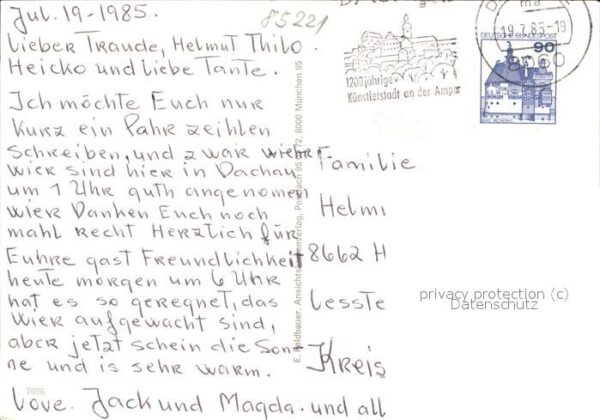 Jul. 19-1985.
85221
Lieber Traude, Helmut Thilo.
Heicko und liebe Tante.
Ich möchte Euch nur
Kurz ein Pahr zeihlen
Schreiben, und zwar
wier sind hier in Dachau
um 1 Uhr guth angenomen
Wier Danken Euch noch
mahl recht Herzlich für
Euhre gast Freundlichkeit
heute morgen um 6 Uhr
hat es so geregnet, das
Wier aufgewacht sind,
aber jetzt schein die Son-
ne und is sehr warm.
Love. Jack und Magda. und all
7606
E. Feldbauer, Ansichtskartenverlag, Postfach 95 01 72, 8000 München 95
1200jährige
Künstlerstadt an der Amper
19.7.85-19
8060
DEUTSCHE BUNDESPOST
90
Familie
Helmi
8662 H
Lesste
Kreis
privacy protection (c)
Datenschutz